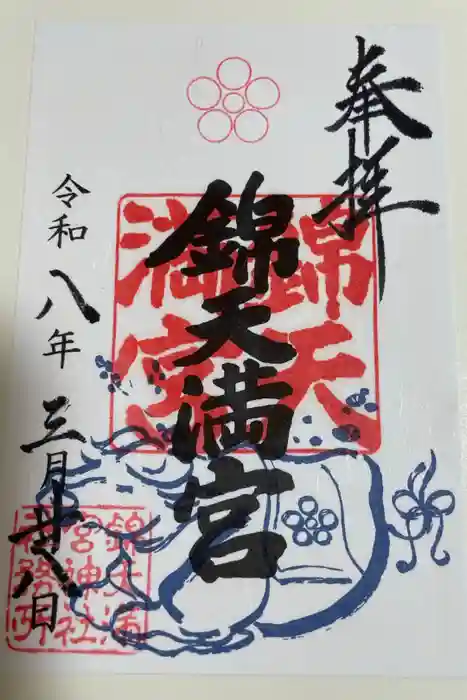 奉拝
錦天満宮
錦天
満宮
令和八年三月廿八日
錦天満
宮神社
務所